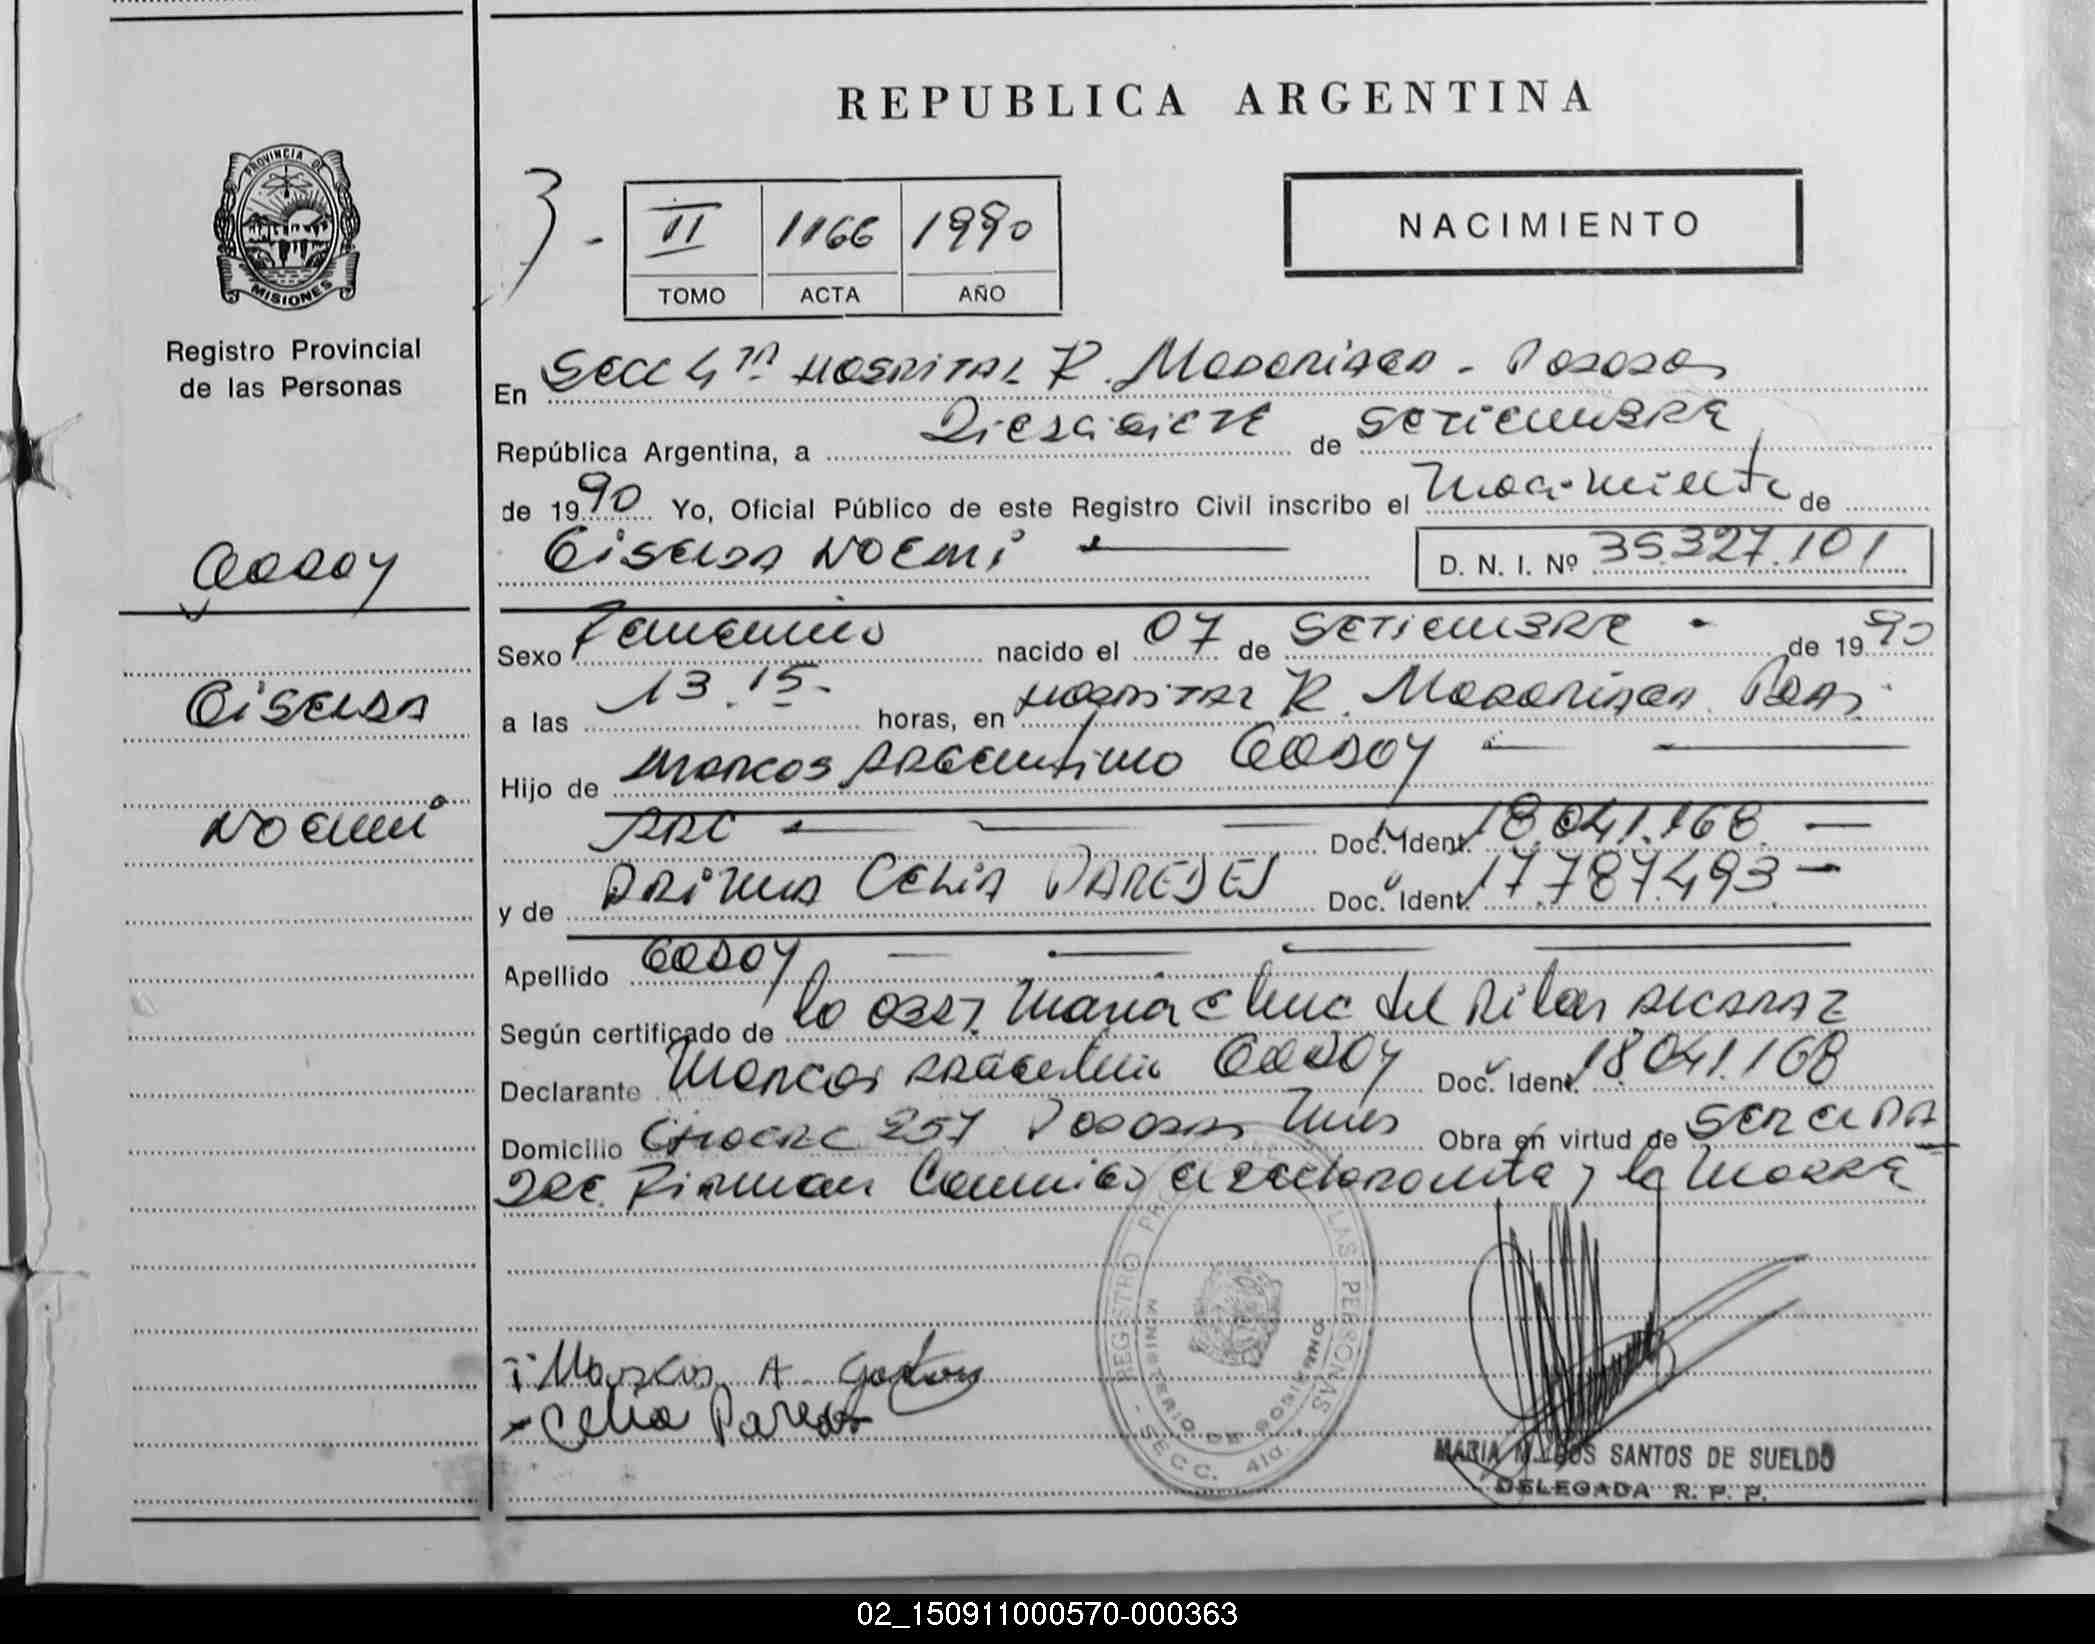 REPUBLICA ARGENTINA
PROVINCIA DE
MISIONES
Registro Provincial
de las Personas
3 -
II 1166 1990
TOMO ACTA AÑO
NACIMIENTO
En Secc 4ta Hospital R. Madariaga - Posadas
República Argentina, a Diesisiete de Setiembre
de 1990 Yo, Oficial Público de este Registro Civil inscribo el nacimiento de
Gisela Noemi D. N. I. Nº 35.327.101
Godoy
Gisela
Noemi
Sexo Femenino nacido el 07 de Setiembre de 1990
a las 13.15 horas, en Hospital R. Madariaga Pdas.
Hijo de Marcos Argentino Godoy
Arg Doc. Ident. 18.041.168
y de Celia PAREDES Doc. Ident. 17.787.493
Apellido Godoy
Según certificado de la Obst. Maria Elena del Pilar Alcaraz
Declarante Marcos Argentino Godoy Doc. Ident. 18.041.168
Domicilio 257 Posadas Mnes Obra en virtud de
Dec. Firman Conmigo el declarante y la Madre
Marcos A. Godoy
Celia Paredes
REGISTRO LAS PERSONAS
MINISTERIO DE GOBIERNO
- SECC. 4ta. -
MARIA M. DOS SANTOS DE SUELDO
DELEGADA R. P. P.
02_150911000570-000363